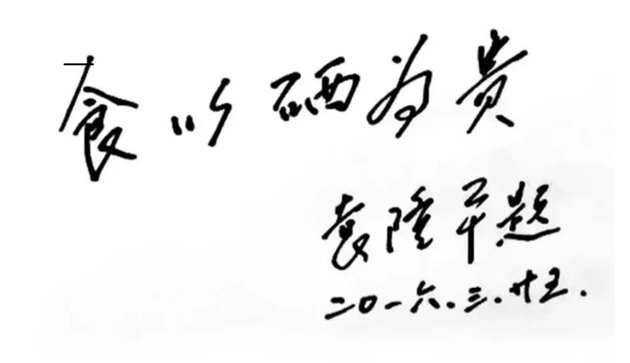 食以硒为贵
袁隆平题
二0一六.三.廿五.